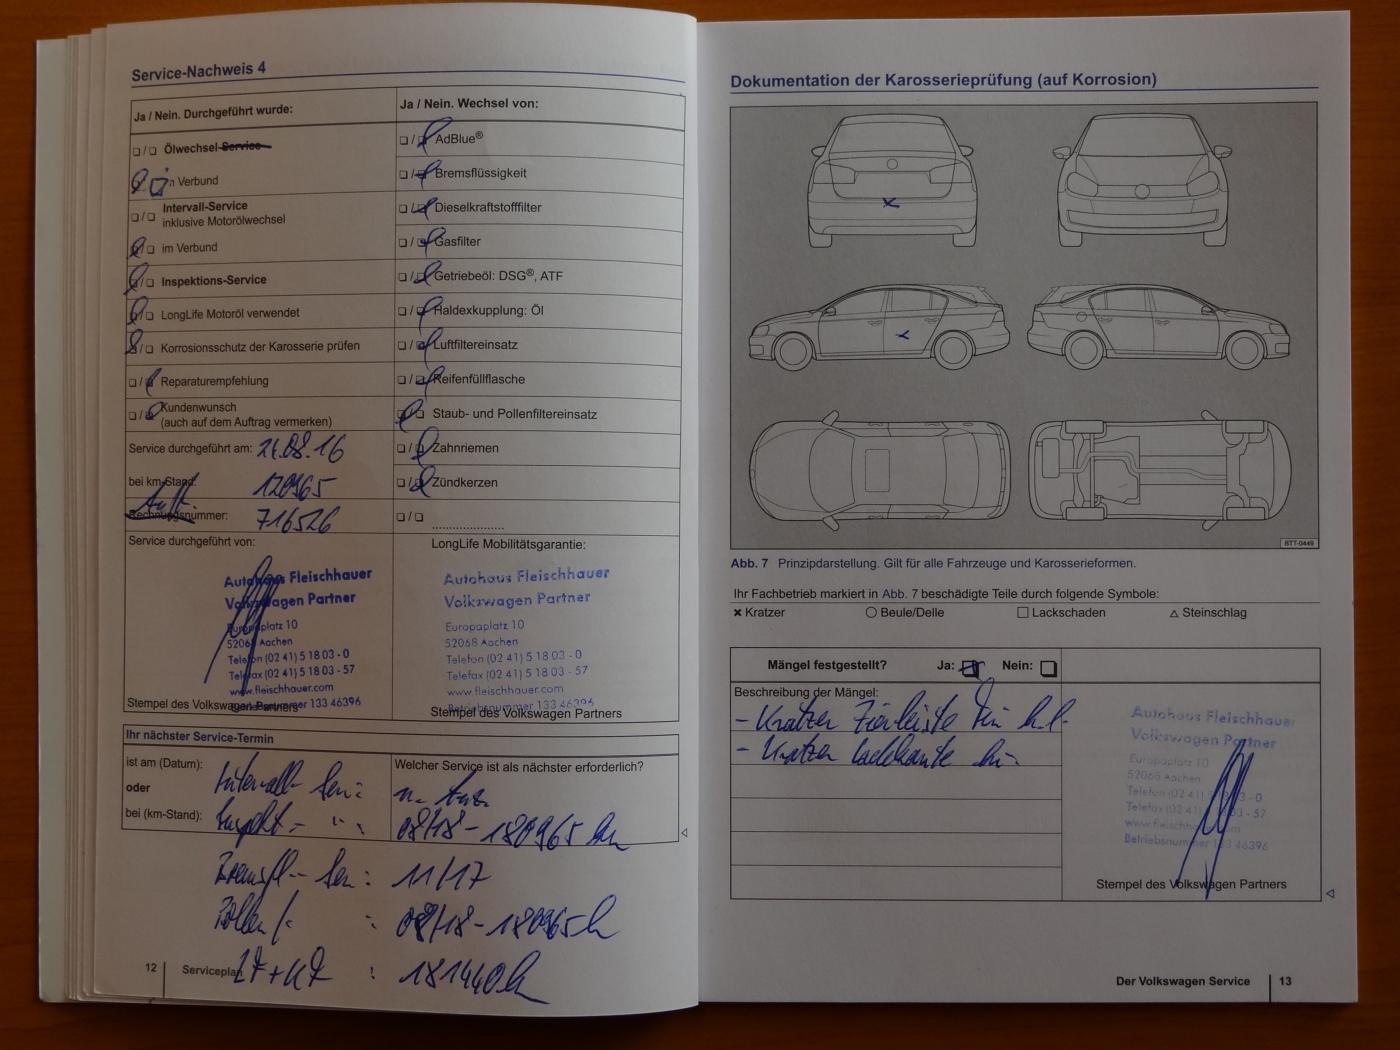 Service-Nachweis 4
Ja / Nein. Durchgeführt wurde:
Ölwechsel-Service
Verbund
Intervall-Service
inklusive Motorölwechsel
im Verbund
Inspektions-Service
LongLife Motoröl verwendet
Korrosionsschutz der Karosserie prüfen
Reparaturempfehlung
Kundenwunsch
(auch auf dem Auftrag vermerken)
Service durchgeführt am: 24.08.16
bei km-Stand: 120965
Auft.
Rechnungsnummer: 716526
Service durchgeführt von:
Autohaus Fleischhauer
Volkswagen Partner
Europaplatz 10
52068 Aachen
Telefon (02 41) 5 18 03 - 0
Telefax (02 41) 5 18 03 - 57
www.fleischhauer.com
Betriebsnummer 133 46396
Stempel des Volkswagen Partners
Ja / Nein. Wechsel von:
AdBlue®
Bremsflüssigkeit
Dieselkraftstofffilter
Gasfilter
Getriebeöl: DSG®, ATF
Haldexkupplung: Öl
Luftfiltereinsatz
Reifenfüllflasche
Staub- und Pollenfiltereinsatz
Zahnriemen
Zündkerzen
LongLife Mobilitätsgarantie:
Autohaus Fleischhauer
Volkswagen Partner
Europaplatz 10
52068 Aachen
Telefon (02 41) 5 18 03 - 0
Telefax (02 41) 5 18 03 - 57
www.fleischhauer.com
Betriebsnummer 133 46396
Stempel des Volkswagen Partners
Ihr nächster Service-Termin
ist am (Datum):
oder
bei (km-Stand):
Welcher Service ist als nächster erforderlich?
Intervall- Ser.: n. Anz.
Inspekt- " : 08/18 - 180965 km
Bremsfl- Ser: 11/17
Pollen : 08/18 - 180965 k
: 181440 k
12 Serviceplan
Dokumentation der Karosserieprüfung (auf Korrosion)
BTT-0449
Abb. 7 Prinzipdarstellung. Gilt für alle Fahrzeuge und Karosserieformen.
Ihr Fachbetrieb markiert in Abb. 7 beschädigte Teile durch folgende Symbole:
Kratzer Beule/Delle Lackschaden Steinschlag
Mängel festgestellt? Ja: Nein:
Beschreibung der Mängel:
- Kratzer Zierleiste Tür h.l.
- Kratzer Ladekante hi.
Autohaus Fleischhauer
Volkswagen Partner
Europaplatz 10
52068 Aachen
Telefon (02 41) 5 18 03 - 0
Telefax (02 41) 5 18 03 - 57
www.fleischhauer.com
Betriebsnummer 133 46396
Stempel des Volkswagen Partners
Der Volkswagen Service 13